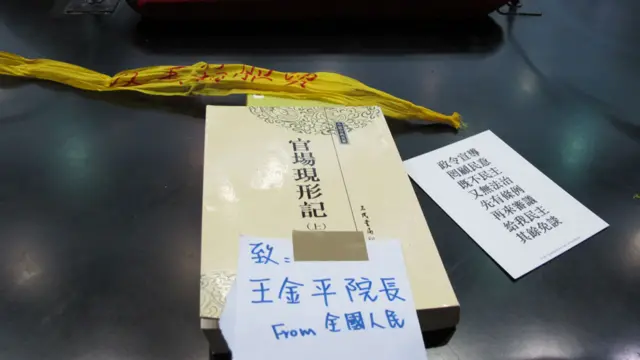 官場現形記
(上)
三民書局
致:
王金平院長
From 全國人民
政令宣導
罔顧民意
既不民主
又無法治
先有條例
再來審議
給我民主
其餘免談